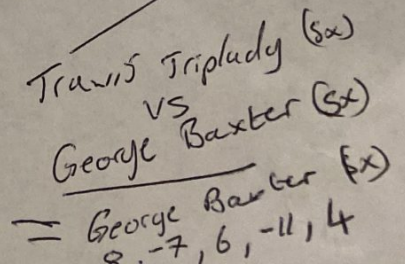 Travis Triplady (Sx)
VS
George Baxter (Sx)
= George Baxter (Sx)
8, -7, 6, -11, 4